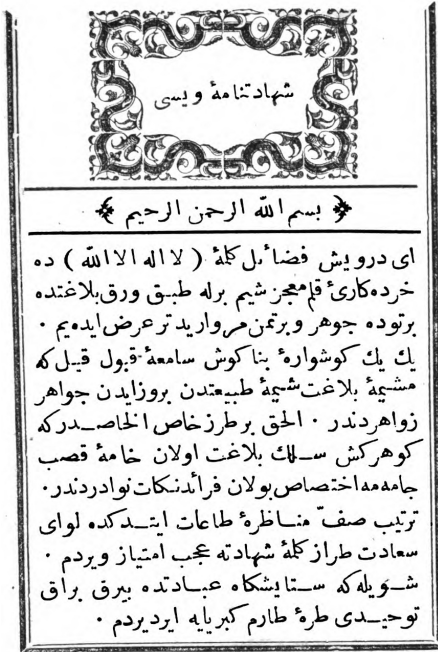 شهادتنامهٔ ویسی
بسم الله الرحمن الرحیم
ای درویش فضائل کلمهٔ ( لا اله الا الله ) ده
خرده کاریٔ قلم معجز شیم برله طبق ورق بلاغتده
برتوده جوهر و برتمن مروارید تر عرض ایده‌یم ·
یك یك کوشوارهٔ بناکوش سامعهٔ قبول قیل که
مشیمهٔ بلاغت شیمهٔ طبیعتدن بروزایدن جواهر
زواهردندر · الحق بر طرز خاص الخاصدرکه
کوهرکش سلك بلاغت اولان خامهٔ قصب
جامه مه اختصاص بولان فرائد نکات نوادردندر·
ترتیب صفّ مناظرهٔ طاعات ایتدکده لوای
سعادت طراز کلمهٔ شهادته عجب امتیاز ویردم ·
شویله که ستایشکاه عبادتده بیرق براق
توحیدی طرهٔ طارم کبریایه ایردیردم ·